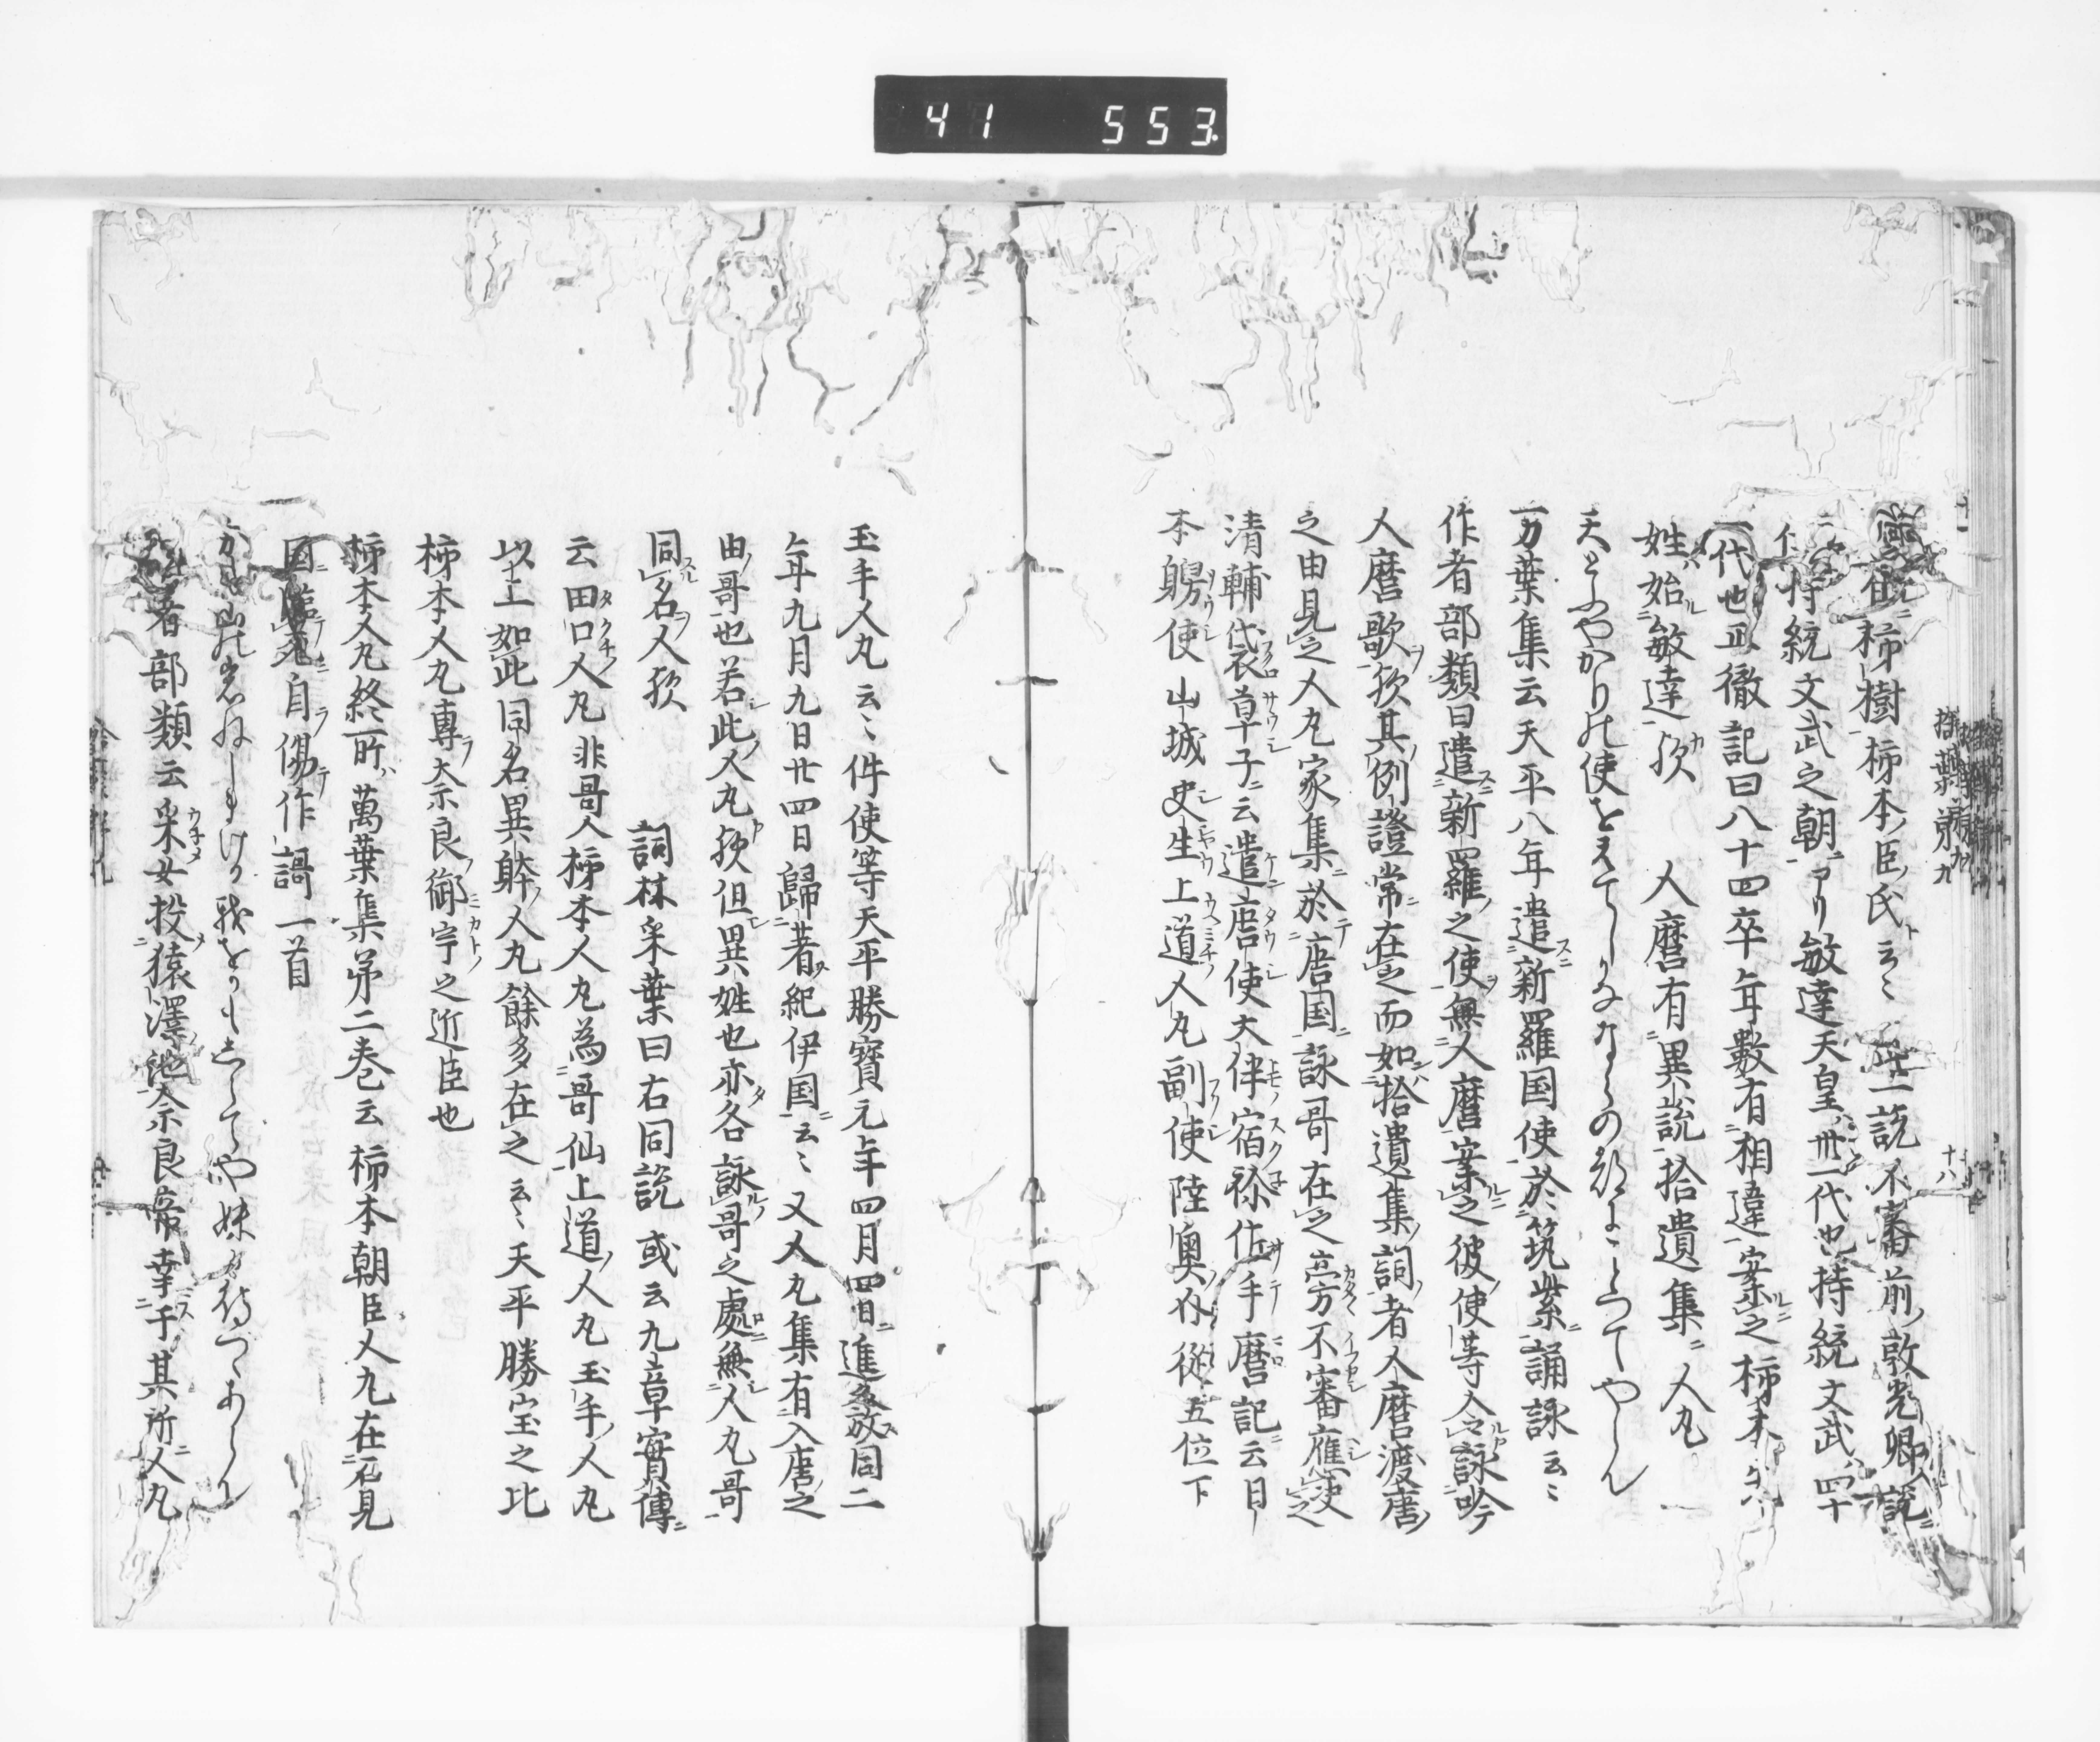 41 553
拾葉第九
十八
家住柿樹柿本臣氏ト云〻 此一説不審前敦光卿説
仕持統文武之朝ヨリ敏達天皇卅一代也持統文武四十
一代也正徹記曰八十四卒年數有相違案之柿本
姓始敏達歟 人麿有異説拾遺集ニ人丸
天とふやかりの使をえてしかなならの都にことつてやらん
一万葉集云天平八年遣新羅国使於筑紫誦詠云〻
作者部類曰遣新羅之使無人麿案之彼使等人之詠吟
人麿歌歟其例證常在之而如拾遺集詞者人麿渡唐
之由見之人丸家集於唐国詠哥在之旁不審應決之
清輔袋草子ニ云遣唐使大伴宿祢佐手麿記云日
本使山城史生上道人丸副使陸奥介従五位下
玉手人丸云〻件使等天平勝寶元年四月四日進發同二
年九月九日廿四日歸著紀伊国云〻又人丸集有入唐之
由哥也若此人丸歟但異姓也亦各詠哥之處無人丸哥
同名人歟 詞林采葉曰右同説或云九章實傳
云田口人丸非哥人柿本人丸為哥仙上道人丸玉手人丸
以上如此同名異躰人丸餘多在之云〻天平勝宝之比
柿本人丸専奈良御宇之近臣也
柿本人丸終所ハ萬葉集第二巻云柿本朝臣人丸在石見
国臨死自傷作謌一首
かも山の岩ねしまける我をかもしらてや妹か待つゝあらん
者部類云采女投猿澤池奈良帝幸于其所人丸